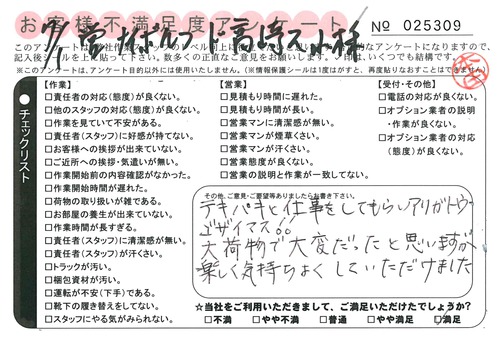 お客様不満足度アンケート
№ 025309
記入後シールを上に貼って下さい。数多くの正直なご意見をお願いします。
(※このアンケートは、アンケート目的以外には使用いたしません。(※情報保護シールは1度はがすと、再度貼りなおすことはできません)
チェックリスト
【作業】
□責任者の対応(態度)が良くない。
□他のスタッフの対応(態度)が良くない。
□作業を見ていて不安がある。
□責任者(スタッフ)に好感が持てない。
□お客様への挨拶が出来ていない。
□ご近所への挨拶・気遣いが無い。
□作業開始前の内容確認がなかった。
□作業開始時間が遅れた。
□荷物の取り扱いが雑である。
□お部屋の養生が出来ていない。
□作業時間が長すぎる。
□責任者(スタッフ)に清潔感が無い。
□責任者(スタッフ)が汗くさい。
□トラックが汚い。
□梱包資材が汚い。
□運転が不安(下手)である。
□靴下の履き替えをしてない。
□スタッフにやる気がみられない。
【営業】
□見積もり時間に遅れた。
□見積もり時間が長い。
□営業マンに清潔感が無い。
□営業マンが煙草くさい。
□営業マンが汗くさい。
□営業態度が良くない。
□営業の説明と作業が一致してない。
【受付・その他】
□電話の対応が良くない。
□オプション業者の説明
・作業が良くない。
□オプション業者の対応
(態度)が良くない。
その他、ご意見・ご要望等ありましたらお書き下さい。
テキパキと仕事をしてもらいアリガトウ
ゴザイマス。。
大荷物で大変だったと思いますが、
楽しく気持ちよくしていただけました
☆当社をご利用いただきまして、ご満足いただけたでしょうか?
□不満 □やや不満 □普通 □やや満足 ☑満足